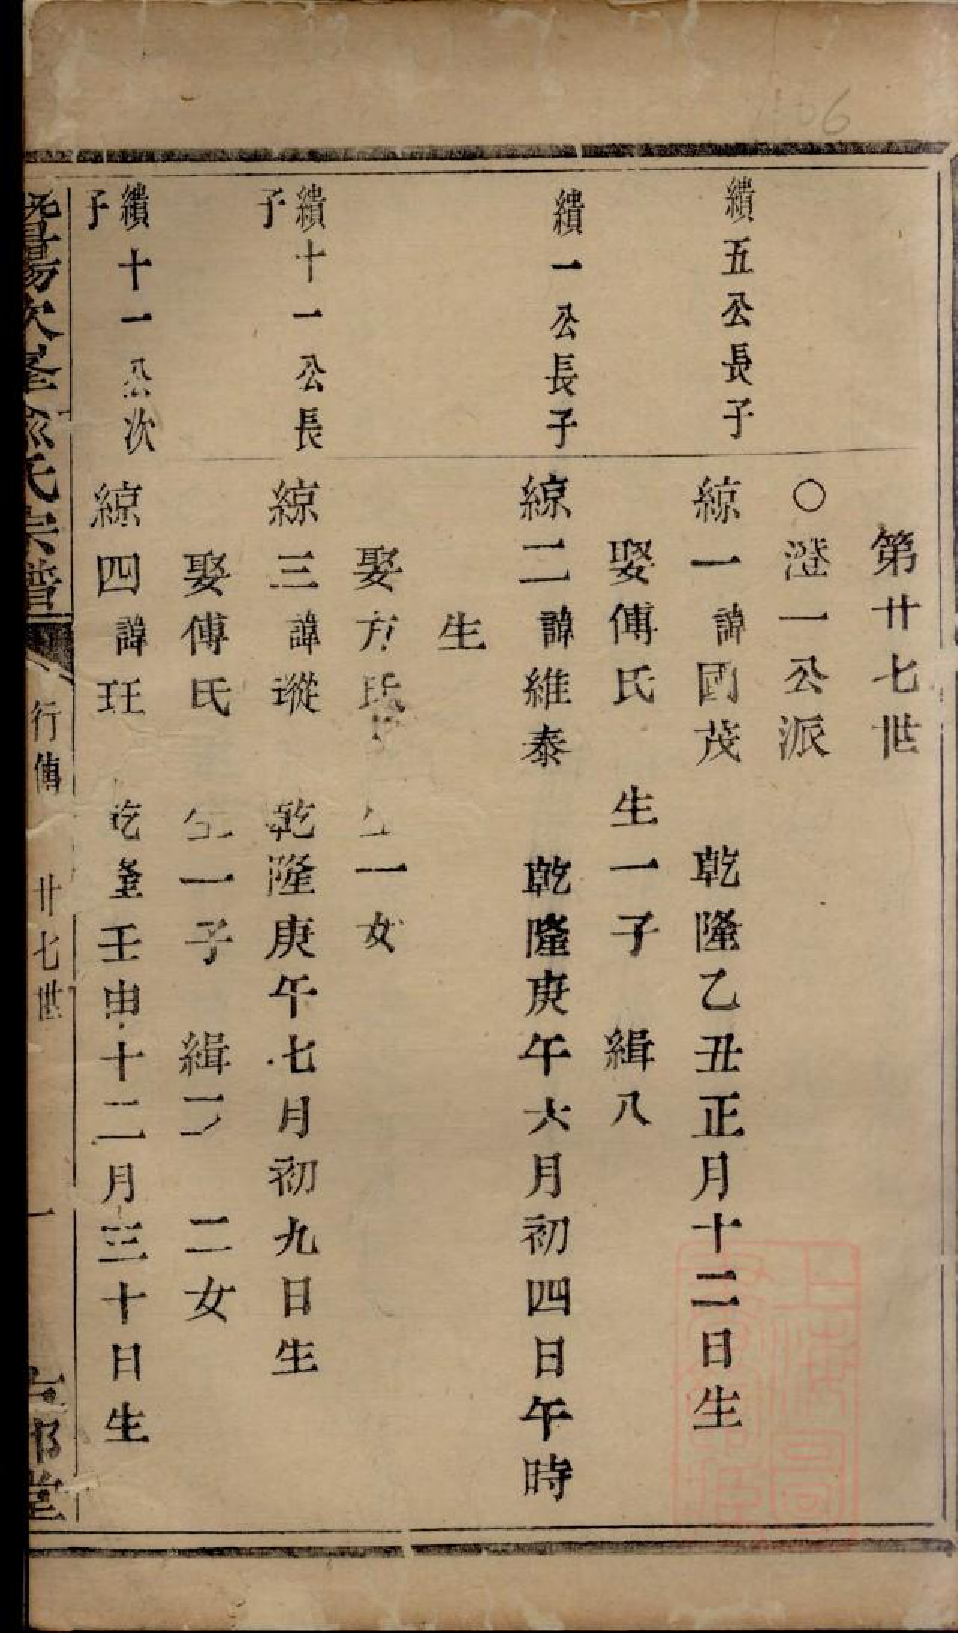 第廿七世
○澨一公派
績五公長子
綡一諱國茂 乾隆乙丑正月十二日生
娶傅氏 生一子 緝八
績一公長子
綡二諱維泰 乾隆庚午六月初四日午時
生
娶方氏 生一女
績十一公長
子
綡三諱瑽 乾隆庚午七月初九日生
娶傅氏 生一子 緝 二女
績十一公次
子
綡四諱玨 乾隆壬申十二月三十日生
暨陽次峯俞氏宗譜
行傳 廿七世 一
堂